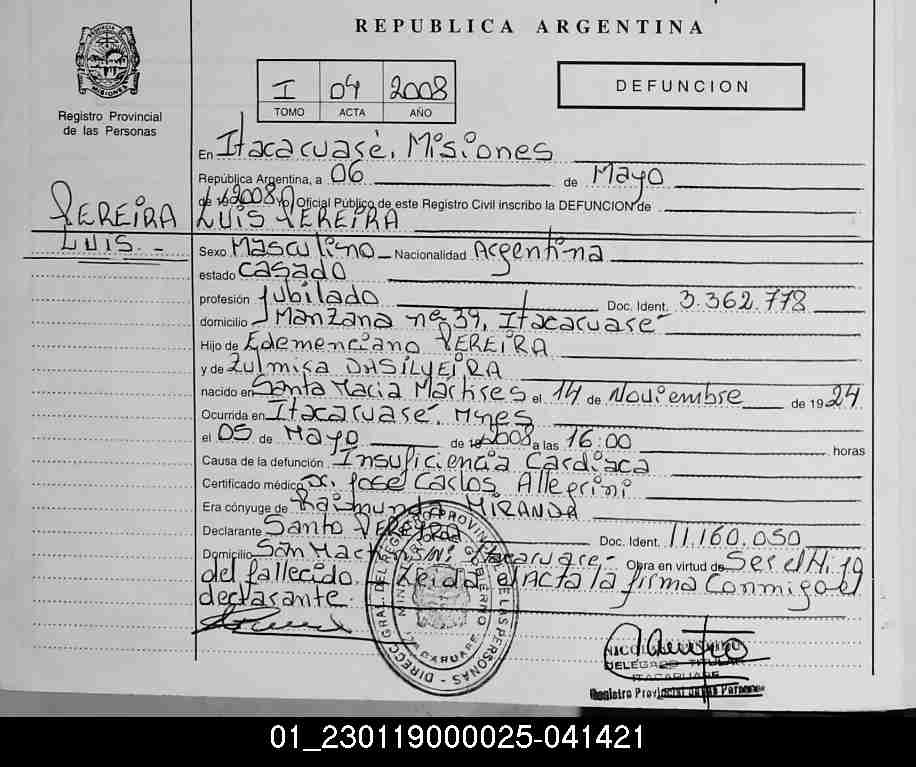 REPUBLICA ARGENTINA
PROVINCIA DE MISIONES
Registro Provincial
de las Personas
I 04 2008
TOMO ACTA AÑO
DEFUNCION
En Itacaruaré, Misiones
República Argentina, a 06 de Mayo
de 19 2008 Yo Oficial Público de este Registro Civil inscribo la DEFUNCION de
PEREIRA LUIS PEREIRA
LUIS.-
Sexo Masculino Nacionalidad Argentina
estado casado
profesión Jubilado Doc. Ident. 3.362.778
domicilio Manzana nº 39, Itacaruaré
Hijo de Edemenciano PEREIRA
y de Zulmira DASILVEIRA
nacido en Santa Maria Martires el 14 de Noviembre de 1924
Ocurrida en Itacaruaré. Mnes
el 05 de Mayo de 19 2008 a las 16:00 horas
Causa de la defunción Insuficiencia Cardiaca
Certificado médico Dr. Jose Carlos Allegrini
Era cónyuge de Raimunda MIRANDA
Declarante Santo PEREIRA Doc. Ident. 11.160.050
Domicilio San Martin S/Nº Itacaruaré Obra en virtud de Ser el Hijo
del fallecido. Leida el Acta la firma conmigo el
declarante.
DIRECC. GRAL. DEL REGISTRO PROVINCIAL DE LAS PERSONAS
ITACARUARE
DELEGADO TITULAR
ITACARUARE
Registro Provincial de las Personas
01_230119000025-041421